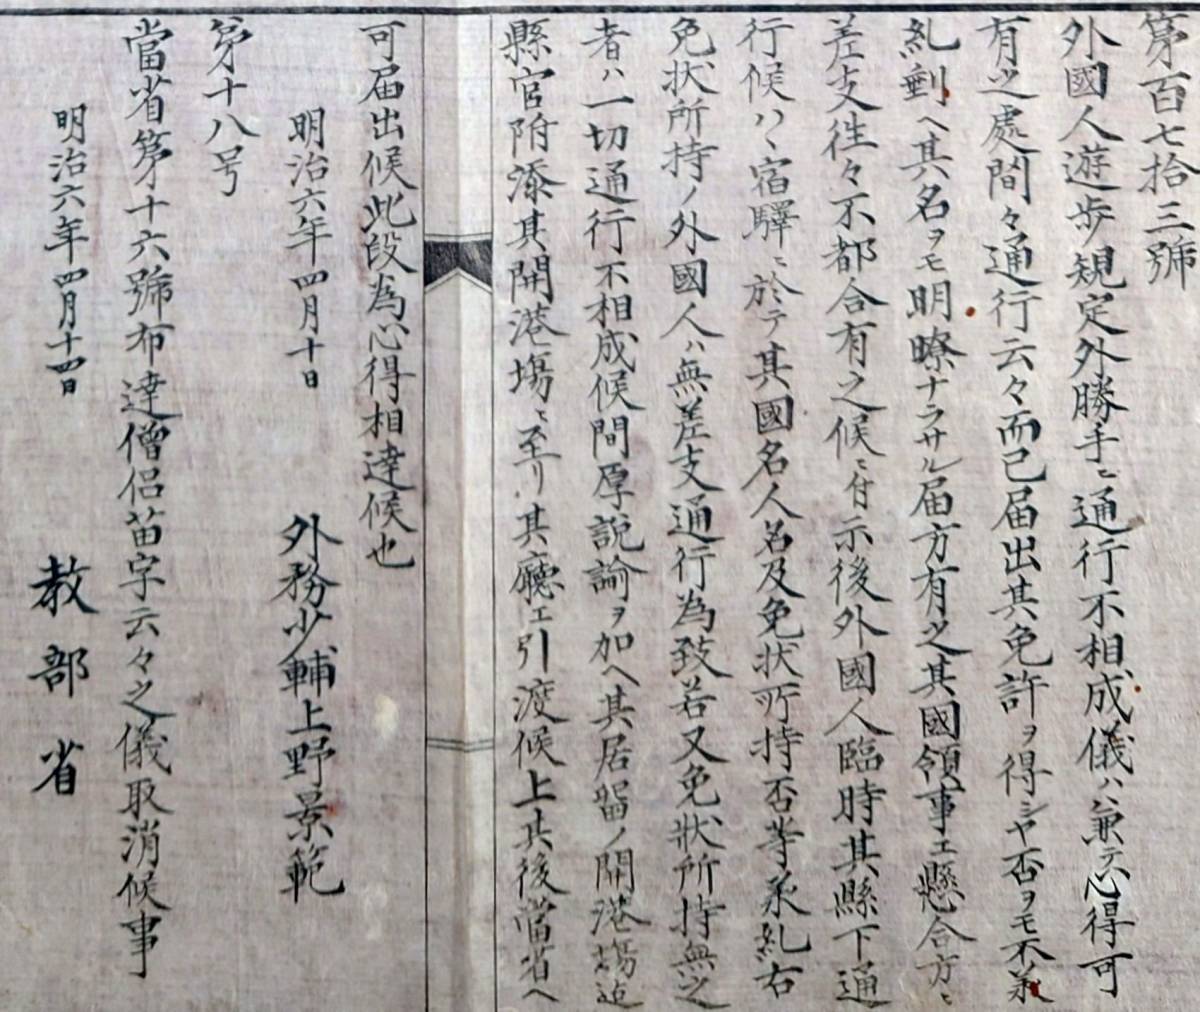 第百七拾三號
外國人遊歩規定外勝手ニ通行不相成儀ハ兼テ心得可
有之處間々通行云々而已届出其免許ヲ得シヤ否ヲモ不承
糺剰ヘ其名ヲモ明瞭ナラサル届方有之其國領事エ懸合方ニ
差支徃々不都合有之候ニ付示後外國人臨時其縣下通
行候ハヽ宿驛ニ於テ其國名人名及免状所持否等承糺右
免状所持ノ外國人ハ無差支通行為致若又免状所持無之
者ハ一切通行不相成候間厚説諭ヲ加ヘ其居留ノ開港塲迠
縣官附添其開港塲ニ至リ其廳エ引渡候上其後當省ヘ
可届出候此段為心得相達候也
明治六年四月十日
外務少輔上野景範
第十八号
當省第十六號布達僧侶苗字云々之儀取消候事
明治六年四月十四日
教部省